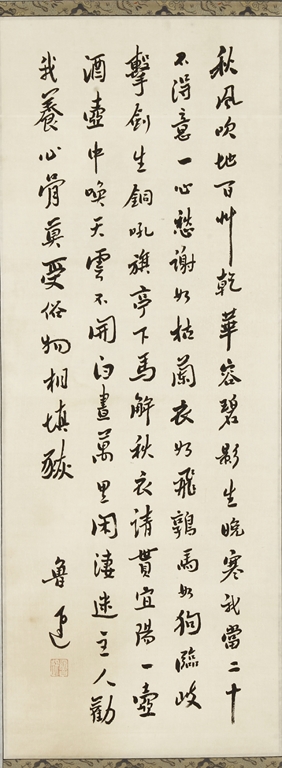 秋風吹地百艸乾華容碧影生晚寒我當二十
不得意一心愁謝如枯蘭衣如飛鶉馬如狗臨岐
擊劍生銅吼旗亭下馬解秋衣請貰宜陽一壺
酒壺中喚天雲不開白晝萬里閑淒迷主人勸
我養心骨莫受俗物相填豗
魯連